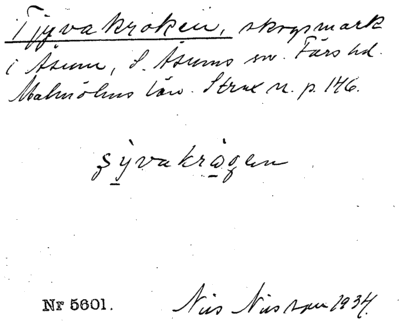 Tjyvakroken, skogsmark
i Åsum, S. Åsums sn. Färs hd.
Malmöhus län. Strax n. p. 146.
ṣy̠vakrågen
Nr 5601. Nils Nilsson 1934.